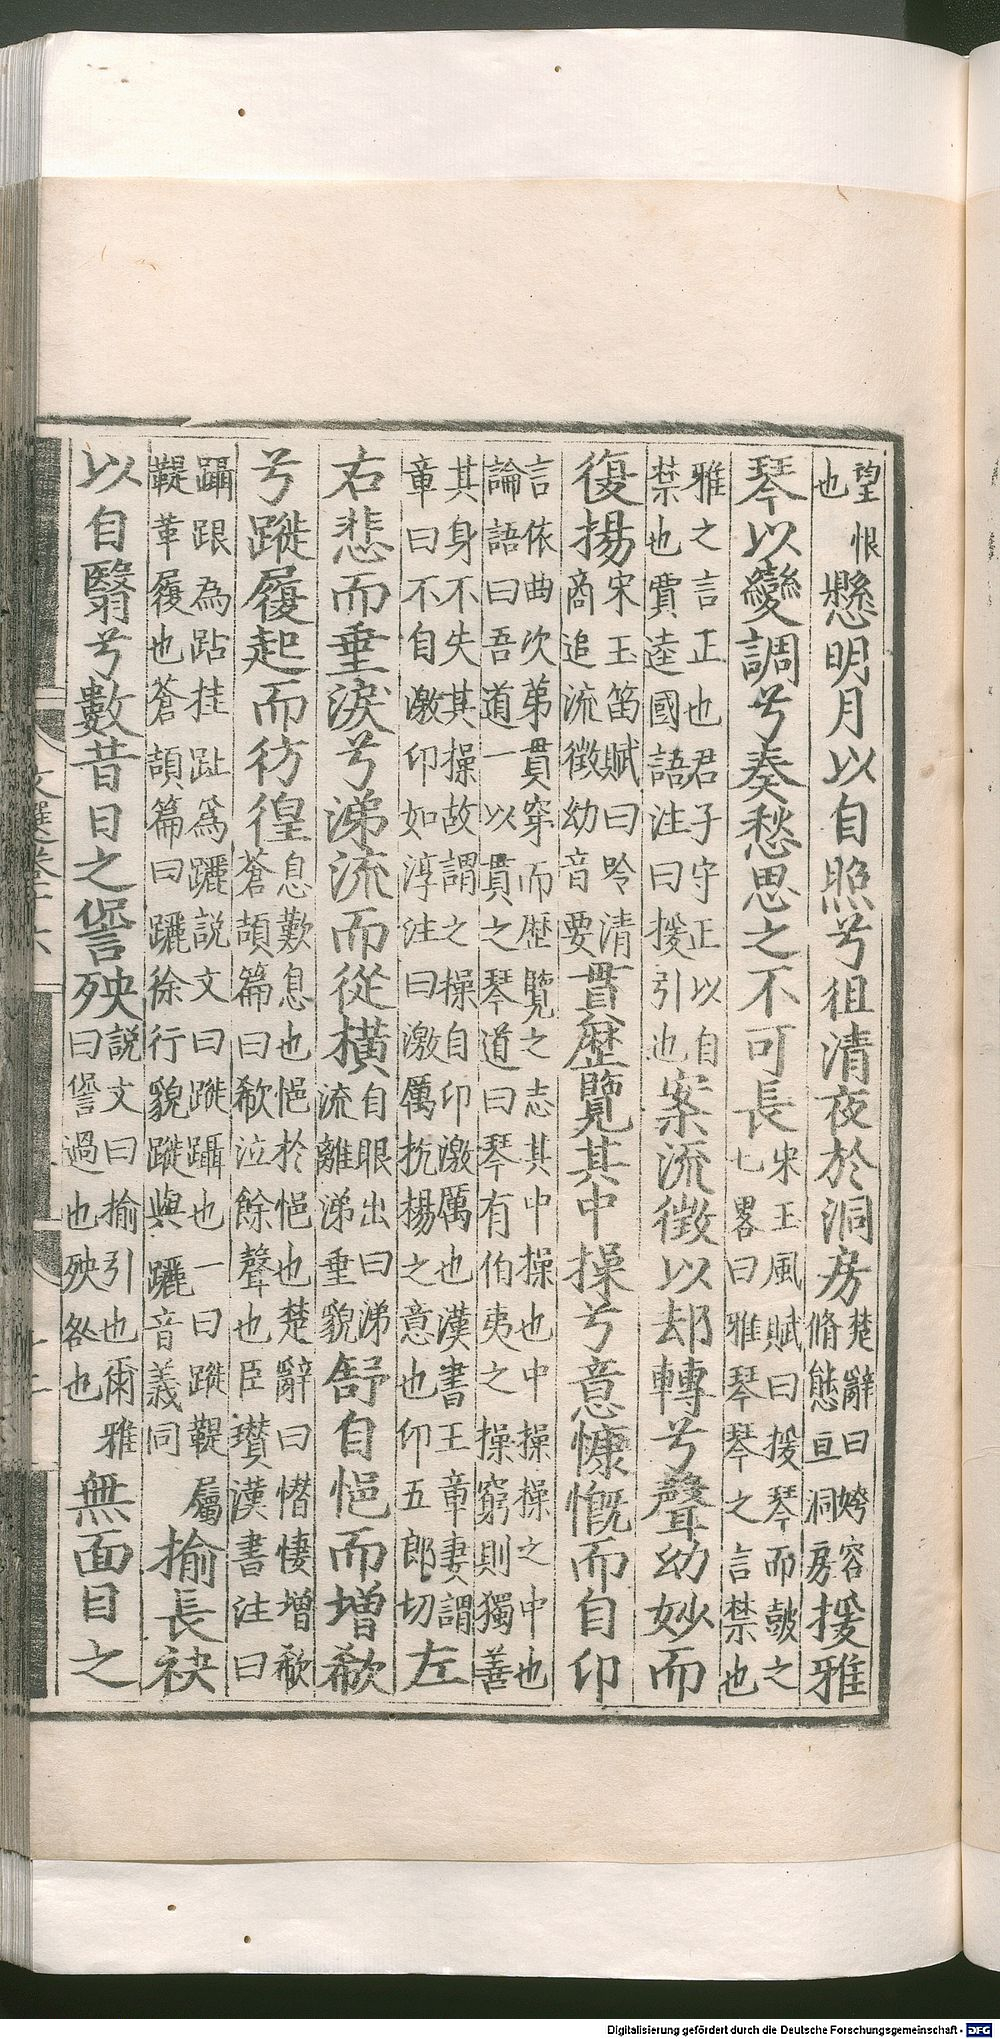 望恨也懸明月以自照兮徂清夜於洞房楚辭曰姱容脩態亘洞房援雅
琴以變調兮奏愁思之不可長宋玉風賦曰援琴而鼓之七畧曰雅琴琴之言禁也
雅之言正也君子守正以自禁也賈逵國語注曰援引也案流徵以却轉兮聲幼妙而
復揚宋玉笛賦曰吟清商追流徵幼音要貫歴覽其中操兮意慷慨而自卬
言依曲次第貫穿而歴覽之志其中操也中操操之中也論語曰吾道一以貫之琴道曰琴有伯夷之操窮則獨善
其身不失其操故謂之操自卬激厲也漢書王章妻謂章曰不自激卬如淳注曰激厲抗揚之意也卬五郎切左
右悲而垂淚兮涕流而從橫自眼出曰涕流離涕垂貌舒自悒而增欷
兮蹝履起而彷徨息歎息也悒於悒也楚辭曰憯悽增欷蒼頡篇曰欷泣餘聲也臣瓚漢書注曰
躡跟為跕挂趾爲躧說文曰蹝躡也一曰蹝鞮屬鞮革履也蒼頡篇曰躧徐行貌蹝與躧音義同揄長袂
以自翳兮數昔日之諐殃說文曰揄引也爾雅曰諐過也殃咎也無面目之
文選卷十六
十二
Digitalisierung gefördert durch die Deutsche Forschungsgemeinschaft - DFG